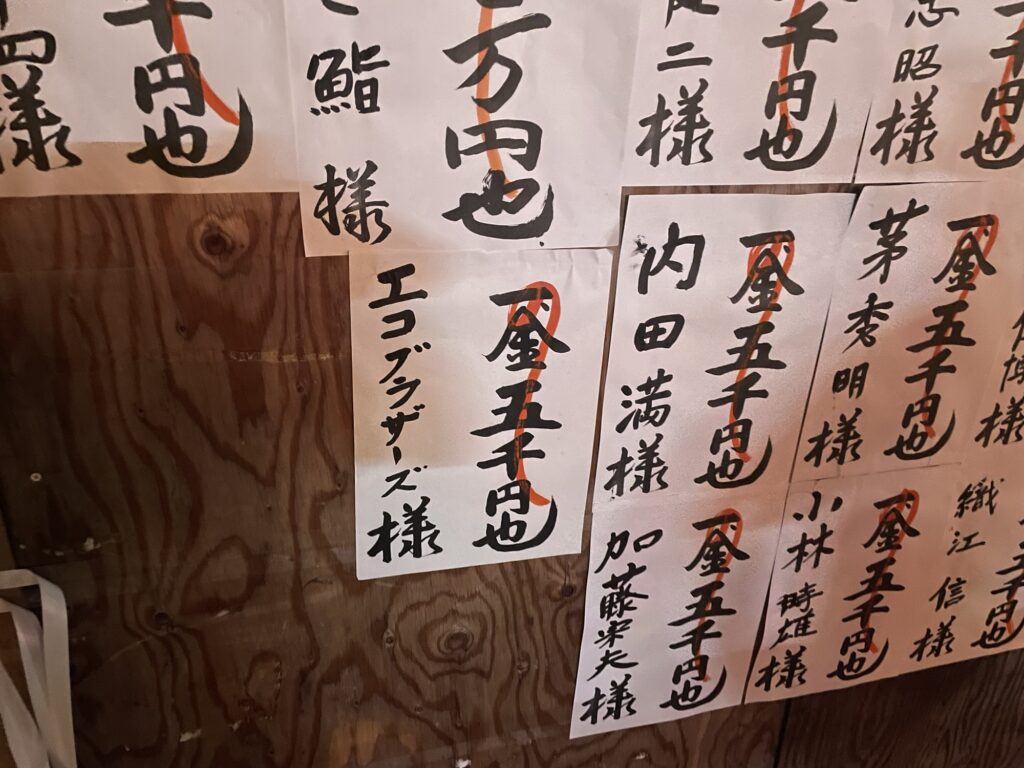 千円也
四様
二万円也
鮨様
千円也
二様
千円也
昭様
一金五千円也
エコブラザーズ様
一金五千円也
内田満様
一金五千円也
茅秀明様
博様
一金五千円也
加藤栄夫様
一金五千円也
小林時雄様
五千円也
織江信様